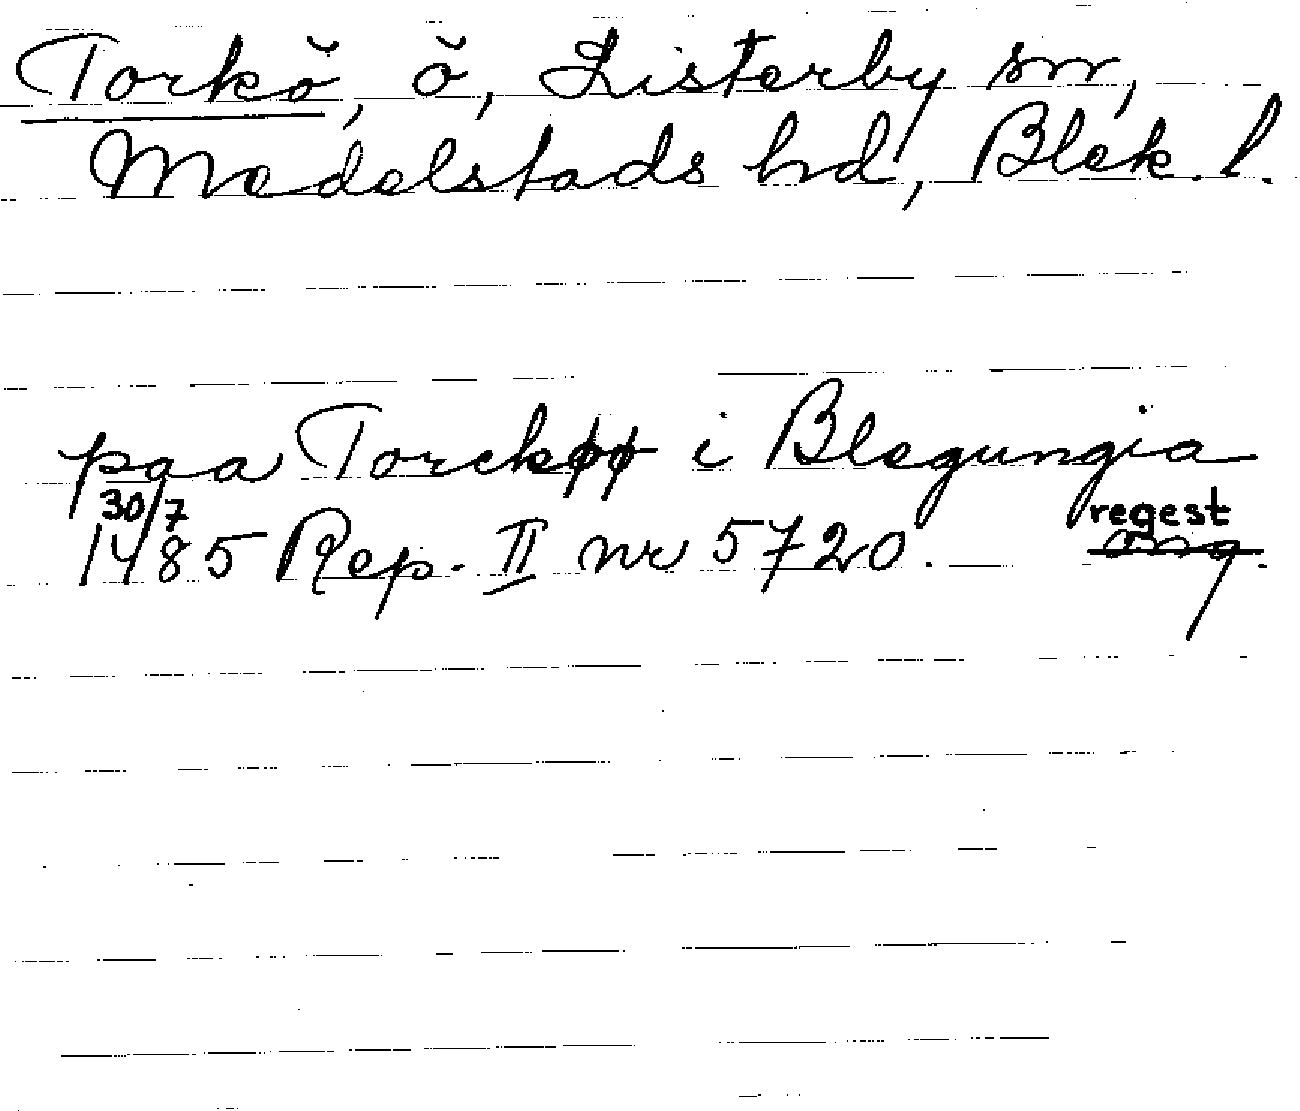 Torkö, ö, Listerby sn,
Medelstads hd, Blek. l.
paa Torckøø i Blegungia
30/7 regest
1485 Rep. II nr 5720. orig.